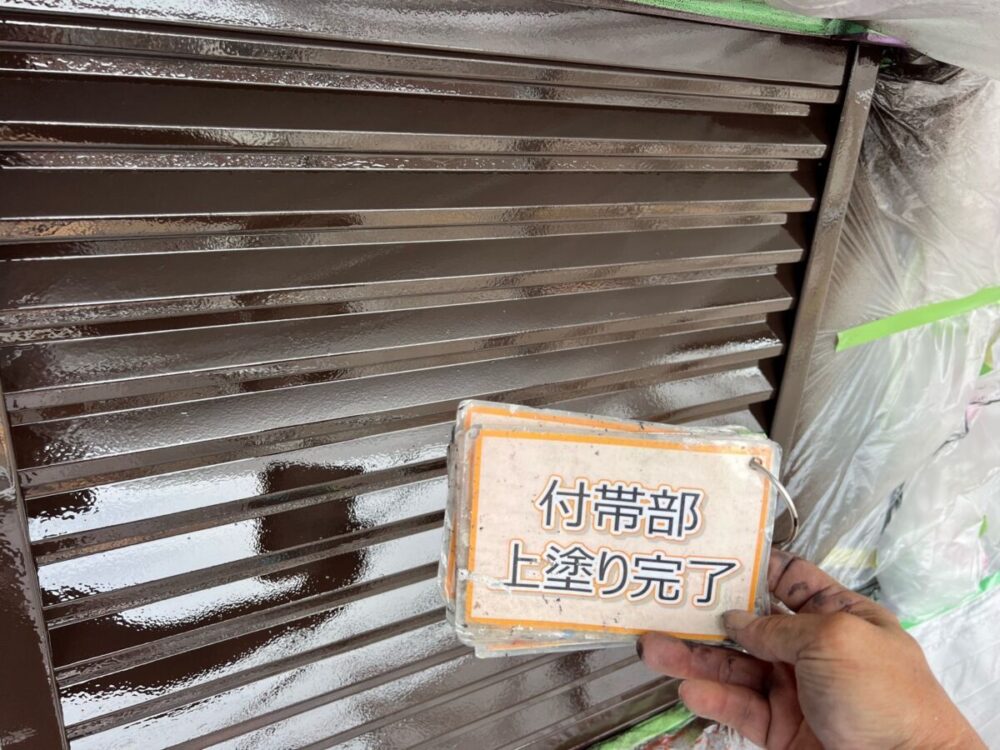 付帯部
上塗り完了